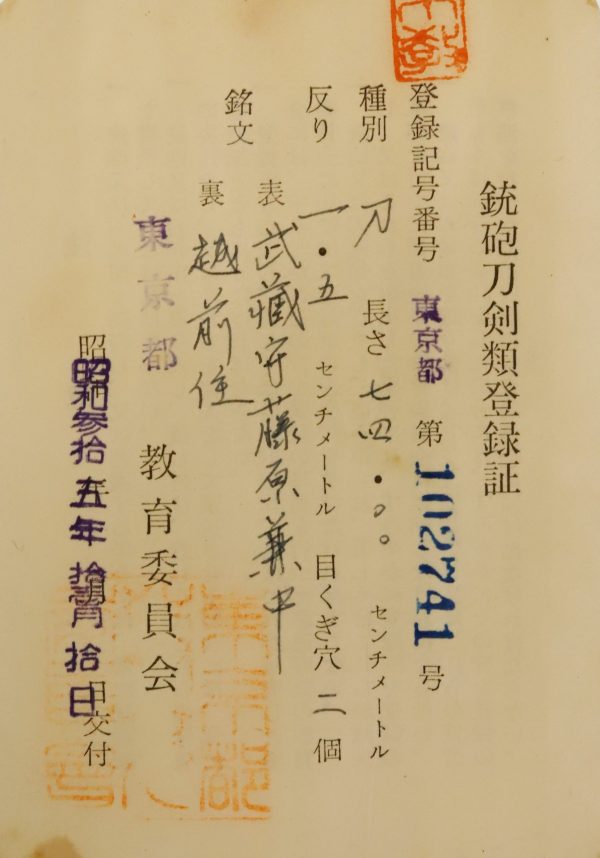 銃砲刀剣類登録証
登録記号番号 東京都 第 102741 号
種別 刀 長さ 七四・〇〇 センチメートル
反り 一・五 センチメートル 目くぎ穴 二 個
銘文 表 武藏守藤原兼中
裏 越前住
東京都 教育委員会
昭和参拾五年 拾壱月 拾日交付